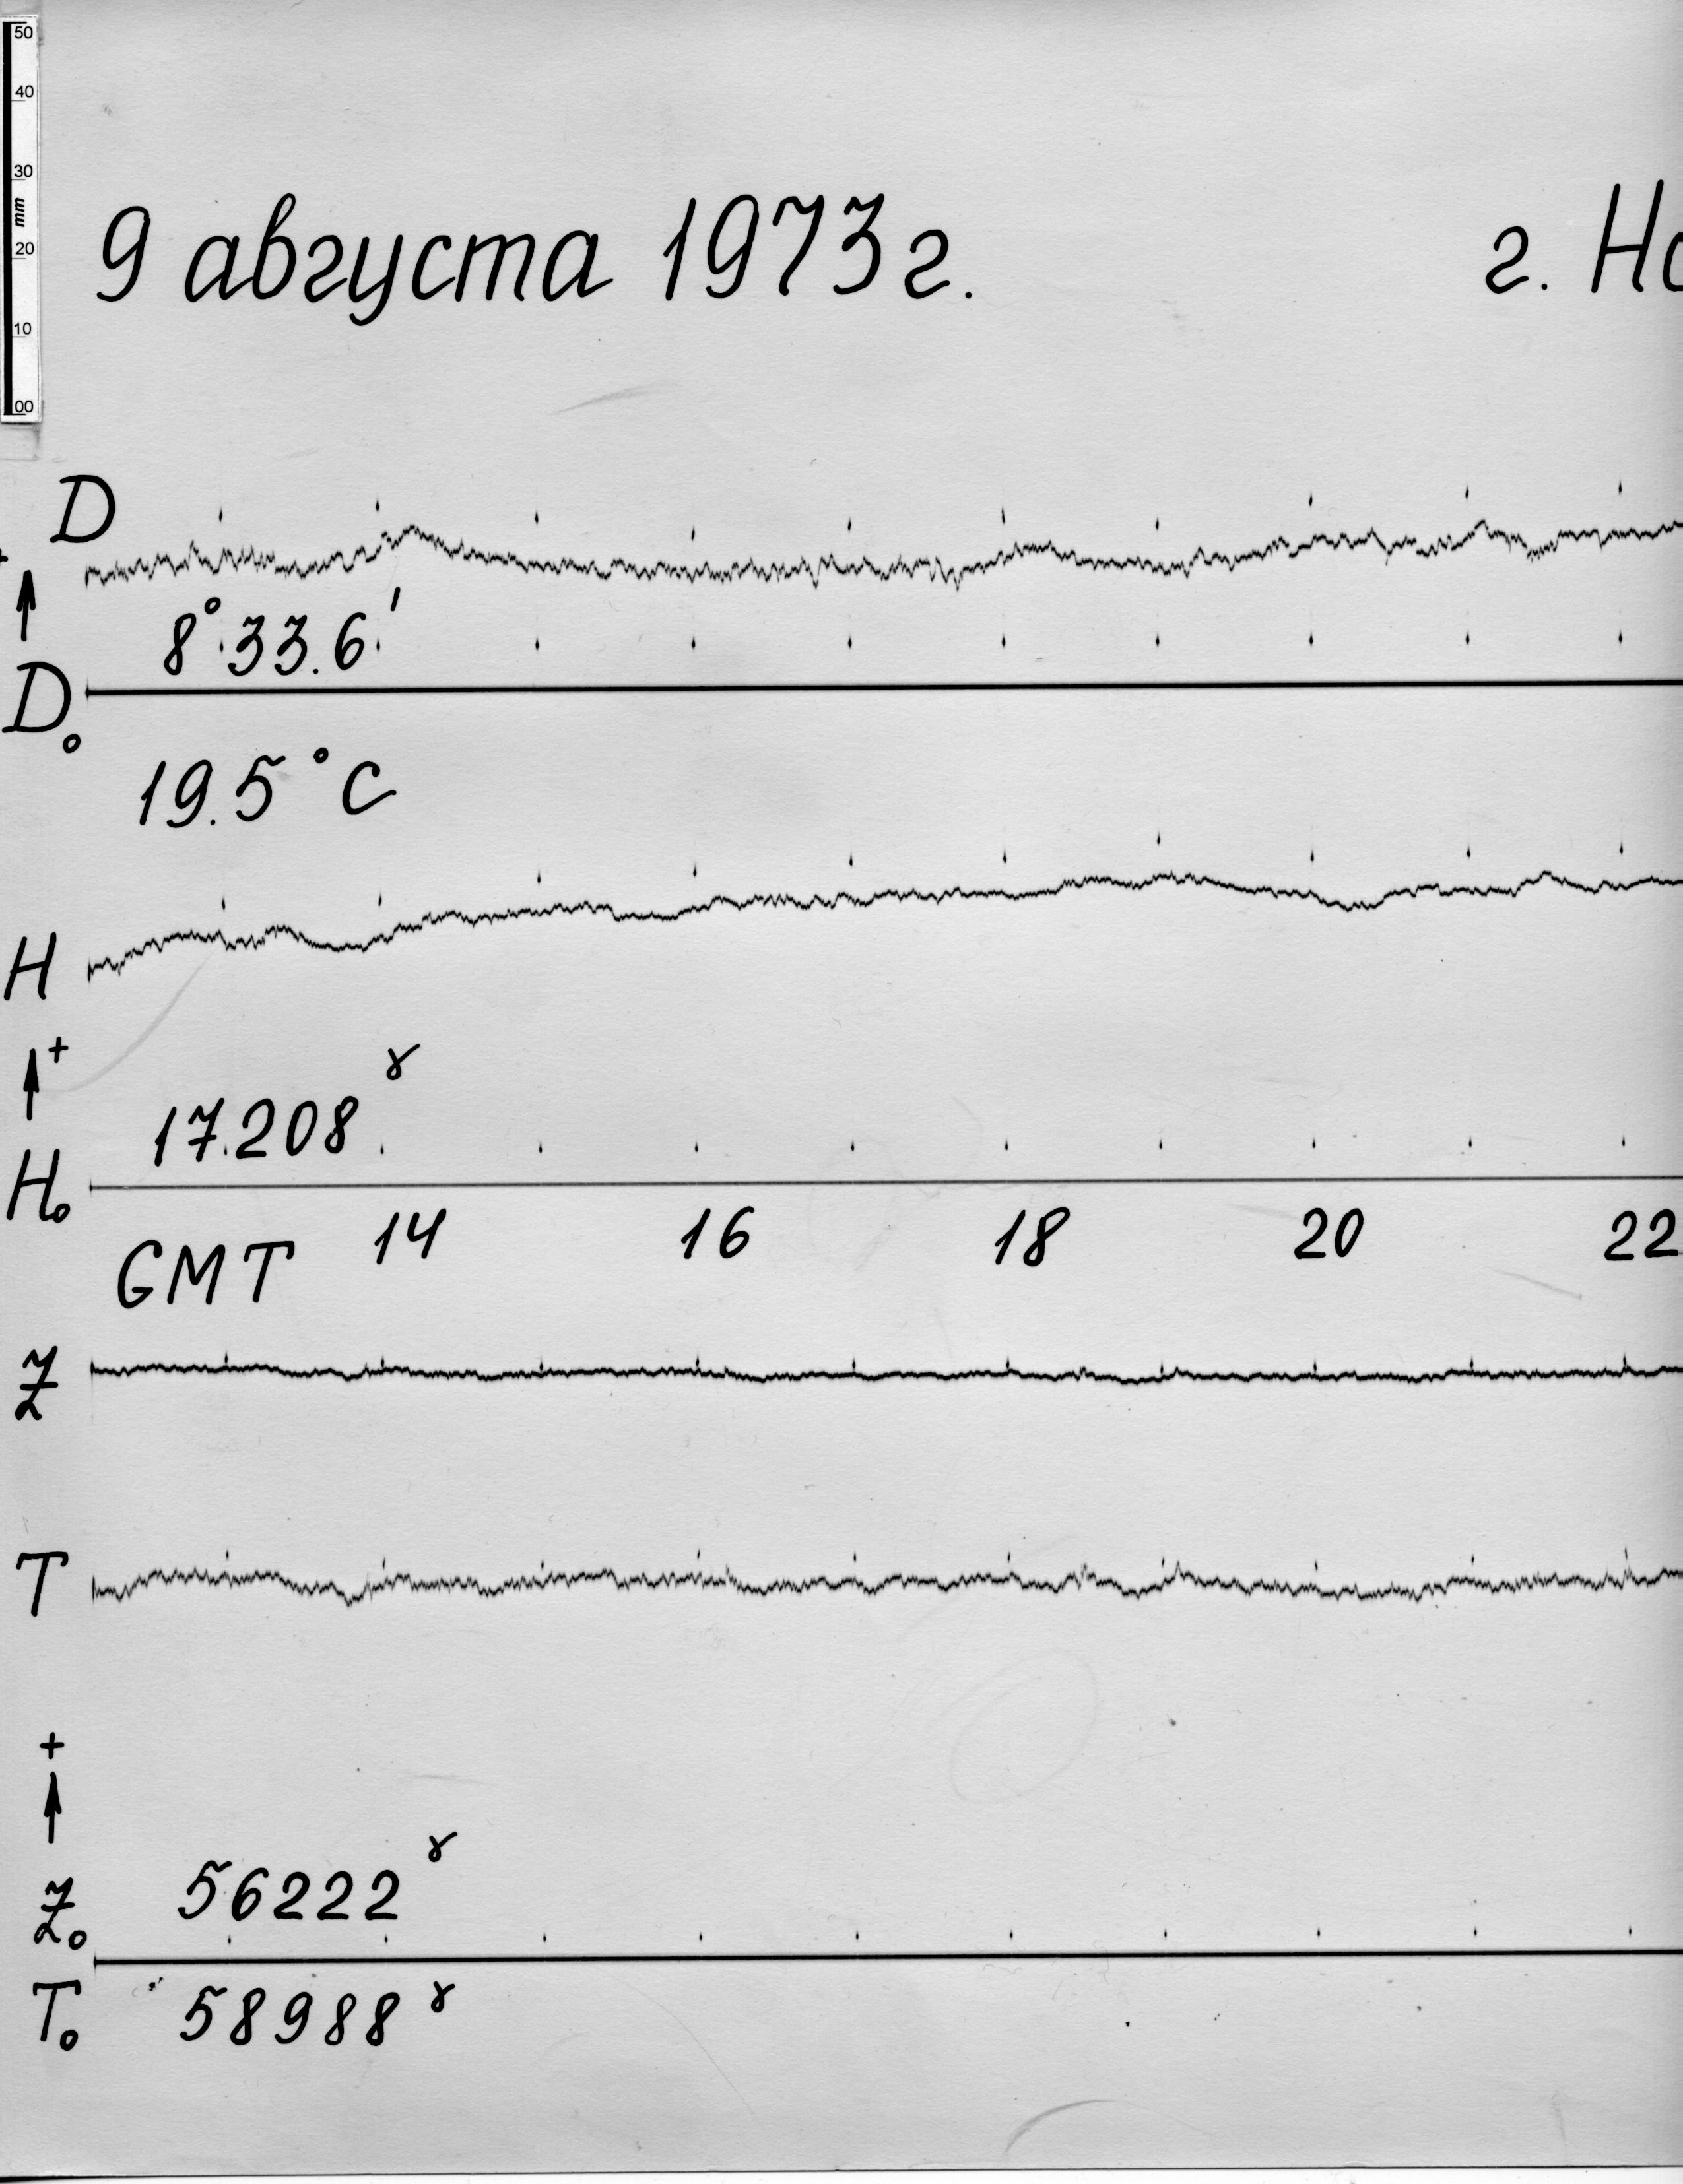 50
40
30
mm
20
10
00
9 августа 1973г. г. Но
D
+
8°33.6'
D₀
19.5°C
H
+
17.208 γ
H₀
14 16 18 20 22
GMT
Z
T
+
56222 γ
Z₀
T₀ 58988 γ